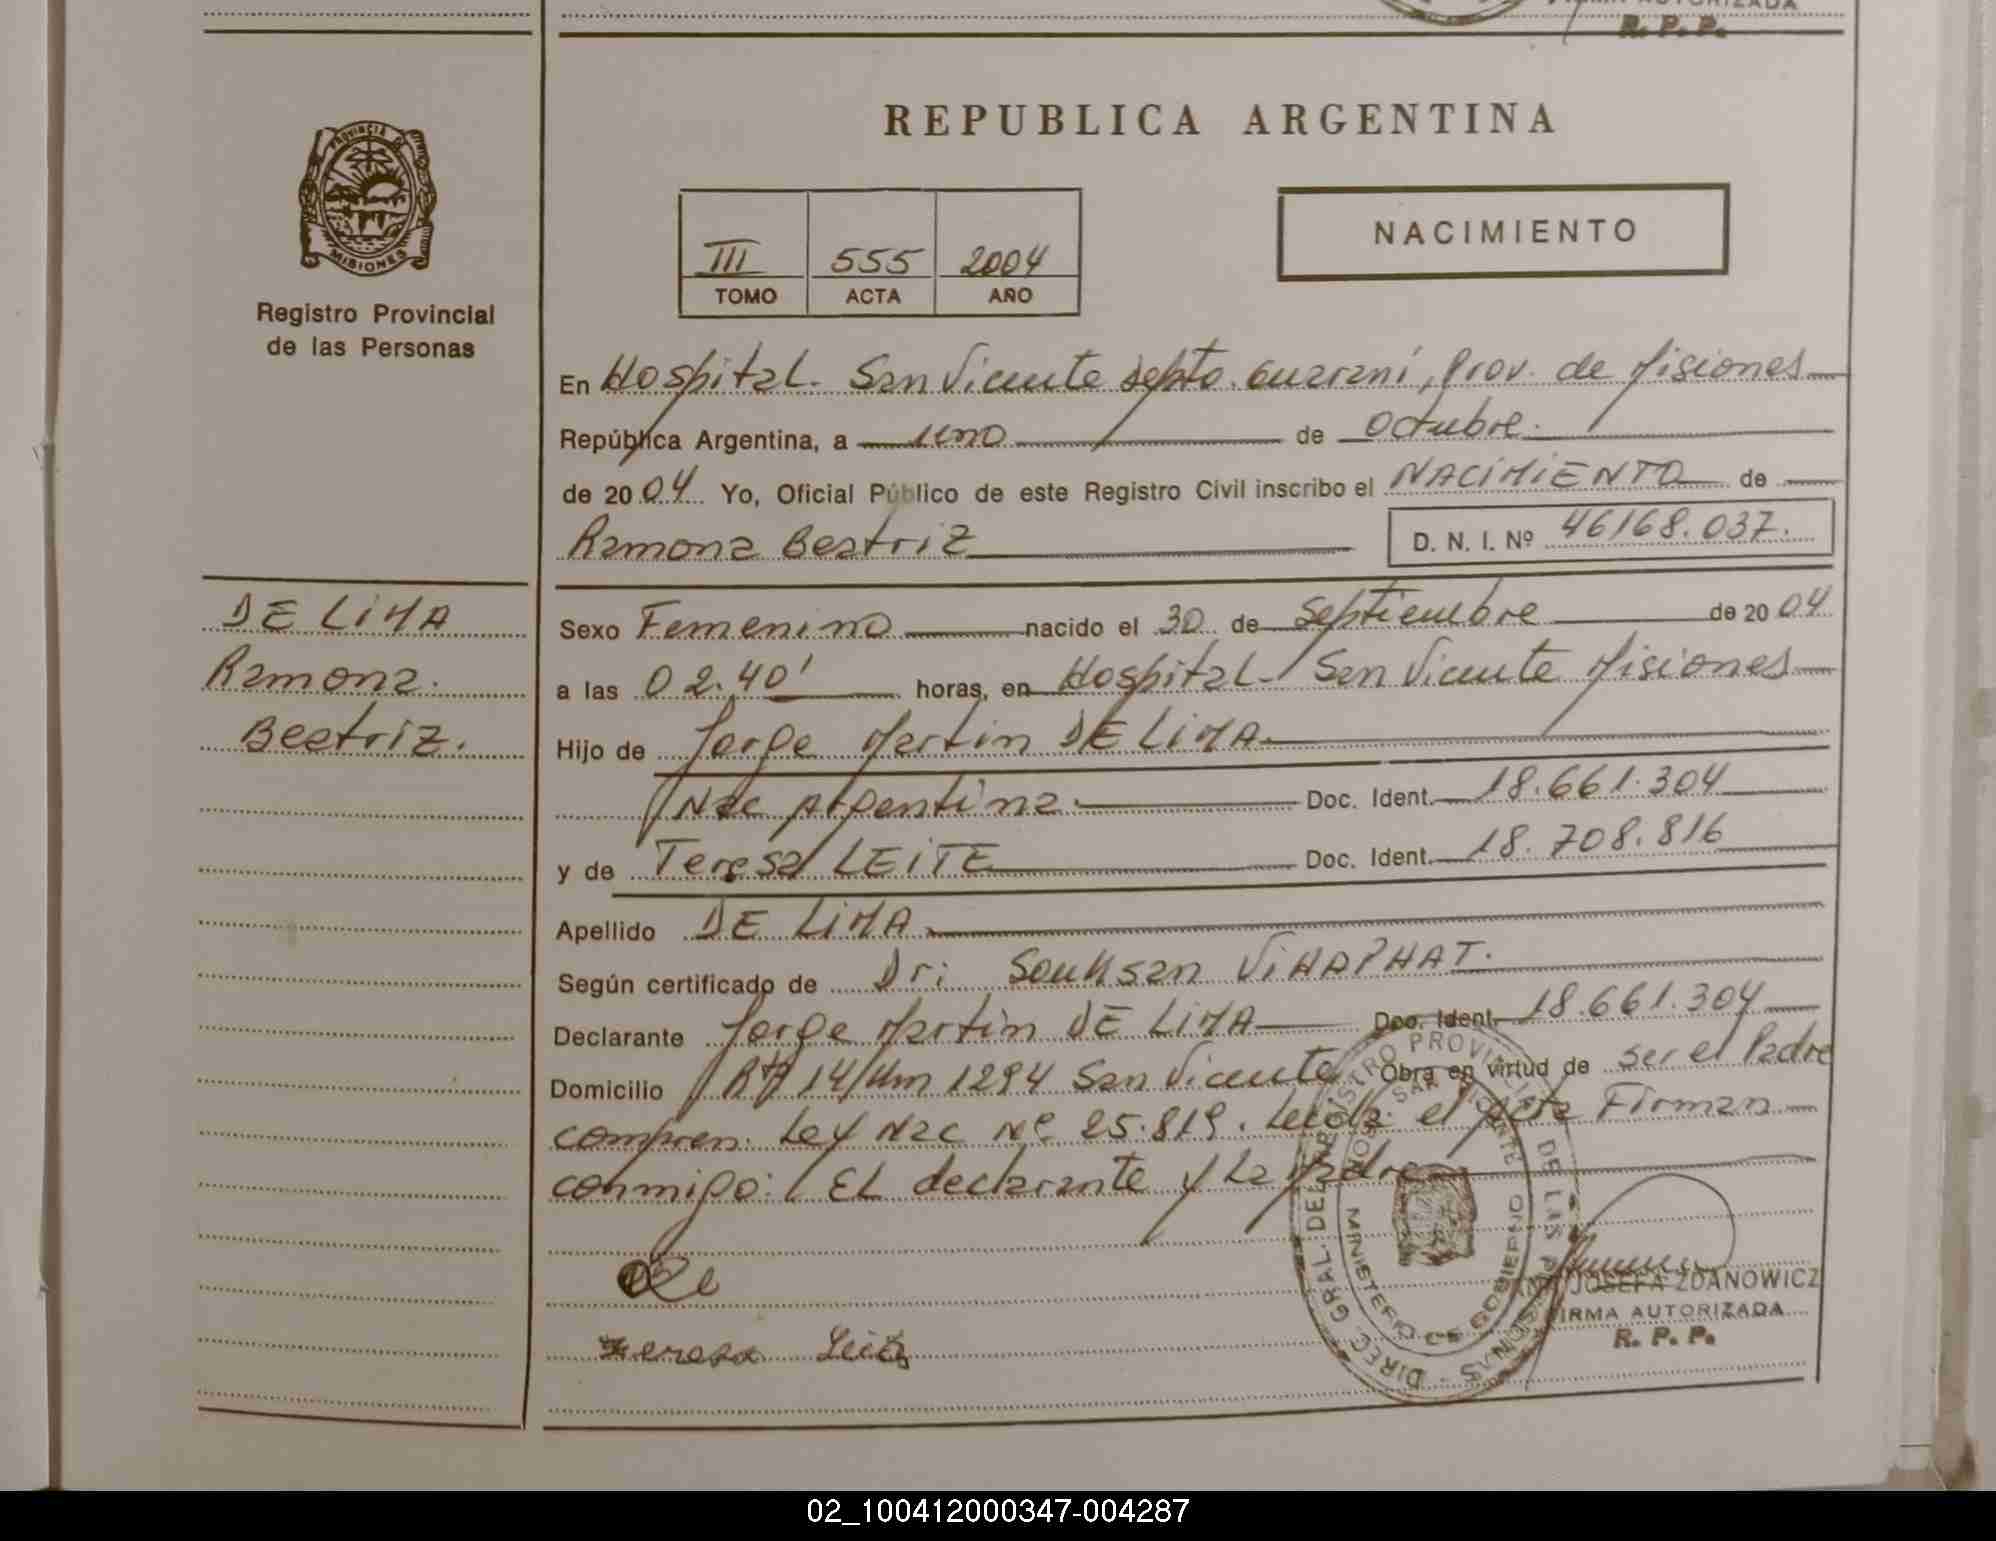 FIRMA AUTORIZADA
R. P. P.
REPUBLICA ARGENTINA
PROVINCIA DE
MISIONES
Registro Provincial
de las Personas
III 555 2004
TOMO ACTA AÑO
NACIMIENTO
En Hospital. San Vicente Depto. Guaraní, Prov. de Misiones
República Argentina, a uno de Octubre.
de 2004 Yo, Oficial Público de este Registro Civil inscribo el NACIMIENTO de
Ramona Beatriz D. N. I. Nº 46168.037.
DE LIMA
Ramona.
Beatriz.
Sexo Femenino nacido el 30 de Septiembre de 2004
a las 02.40' horas, en Hospital - San Vicente Misiones
Hijo de Jorge Martin DE LIMA.
Nac Argentina. Doc. Ident. 18.661.304
y de Teresa LEITE Doc. Ident. 18.708.816
Apellido DE LIMA
Según certificado de Dr: Souksan VIHAPHAT.
Declarante Jorge Martin DE LIMA Doc. Ident. 18.661.304
Domicilio Rta 14/Km 1294 San Vicente Obra en virtud de ser el Padre
compren. Ley Nac Nº 25.819. Leida el Acta Firman
conmigo: EL declarante y La Madre
Teresa Leite
DIREC. GRAL. DEL REGISTRO PROVINCIAL DE LAS PERSONAS
SAN VICENTE
MINISTERIO DE GOBIERNO
JOSEFA ZDANOWICZ
FIRMA AUTORIZADA
R. P. P.
02_100412000347-004287